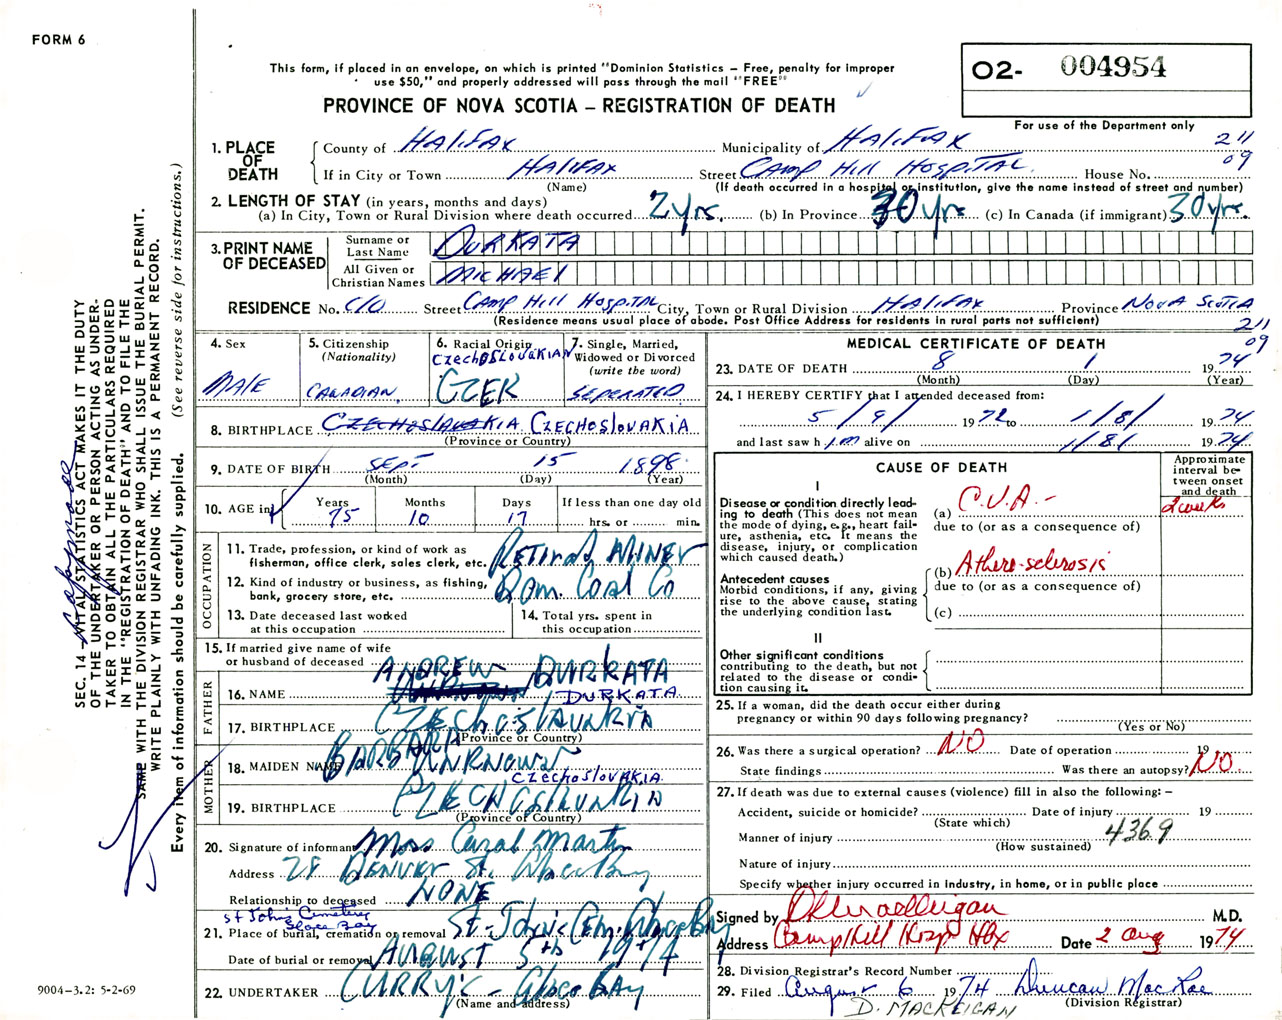 FORM 6
This form, if placed in an envelope, on which is printed "Dominion Statistics – Free, penalty for improper
use $50," and properly addressed will pass through the mail "FREE"
PROVINCE OF NOVA SCOTIA – REGISTRATION OF DEATH
O2- 004954
For use of the Department only
211
09
1. PLACE OF DEATH
County of Halifax Municipality of Halifax
If in City or Town Halifax Street Camp Hill Hospital House No.
(Name) (If death occurred in a hospital or institution, give the name instead of street and number)
2. LENGTH OF STAY (in years, months and days)
(a) In City, Town or Rural Division where death occurred 2 yrs. (b) In Province 30 yrs (c) In Canada (if immigrant) 30 yrs.
3. PRINT NAME OF DECEASED
Surname or Last Name DURKATA
All Given or Christian Names MICHAEL
RESIDENCE No. C/O Street Camp Hill Hospital City, Town or Rural Division Halifax Province Nova Scotia
(Residence means usual place of abode. Post Office Address for residents in rural parts not sufficient)
211
09
4. Sex
MALE
5. Citizenship
(Nationality)
CANADIAN
6. Racial Origin
Czechoslovakian
CZEK
7. Single, Married,
Widowed or Divorced
(write the word)
SEPERATED
8. BIRTHPLACE CZECHOSLOVAKIA CZECHOSLOVAKIA
(Province or Country)
9. DATE OF BIRTH Sept 15 1898
(Month) (Day) (Year)
10. AGE in
Years Months Days If less than one day old
75 10 17 hrs. or min.
OCCUPATION
11. Trade, profession, or kind of work as
fisherman, office clerk, sales clerk, etc. Retired Miner
12. Kind of industry or business, as fishing,
bank, grocery store, etc. Dom. Coal Co
13. Date deceased last worked
at this occupation
14. Total yrs. spent in
this occupation
15. If married give name of wife
or husband of deceased
FATHER
ANDREW DURKATA
16. NAME DURKATA
17. BIRTHPLACE CZECHOSLAVAKIA
(Province or Country)
MOTHER
18. MAIDEN NAME BARBARA UNKNOWN
CZechoslovakia
19. BIRTHPLACE CZECHOSLAVAKIA
(Province of Country)
20. Signature of informant Carol Martin
Address 28 Denver St. Glace Bay
Relationship to deceased NONE
St John's Cemetery
Glace Bay
21. Place of burial, cremation or removal St. John's Cem. Glace Bay
Date of burial or removal August 5th 1974
22. UNDERTAKER CURRY'S - Glace Bay
(Name and address)
MEDICAL CERTIFICATE OF DEATH
23. DATE OF DEATH 8 1 1974
(Month) (Day) (Year)
24. I HEREBY CERTIFY that I attended deceased from:
5/9/ 1972 to 1/8/ 1974
and last saw him alive on 1/8/ 1974
CAUSE OF DEATH
Approximate
interval be-
tween onset
and death
I
Disease or condition directly lead-
ing to death (This does not mean
the mode of dying, e.g., heart fail-
ure, asthenia, etc. It means the
disease, injury, or complication
which caused death.)
(a) C.V.A. - 2 weeks
due to (or as a consequence of)
Antecedent causes
Morbid conditions, if any, giving
rise to the above cause, stating
the underlying condition last.
(b) Athero-sclerosis
due to (or as a consequence of)
(c)
II
Other significant conditions
contributing to the death, but not
related to the disease or condi-
tion causing it.
25. If a woman, did the death occur either during
pregnancy or within 90 days following pregnancy?
(Yes or No)
26. Was there a surgical operation? NO Date of operation 19
State findings Was there an autopsy? NO
27. If death was due to external causes (violence) fill in also the following: –
Accident, suicide or homicide? Date of injury 19
(State which)
Manner of injury 4369
(How sustained)
Nature of injury
Specify whether injury occurred in industry, in home, or in public place
Signed by M.D.
Address Camp Hill Hosp Hfx Date 2 Aug 1974
28. Division Registrar's Record Number
29. Filed August 6 1974 Duncan MacRae
(Division Registrar)
D. MACKEIGAN
SEC. 14 – VITAL STATISTICS ACT MAKES IT THE DUTY
OF THE UNDERTAKER OR PERSON ACTING AS UNDER-
TAKER TO OBTAIN ALL THE PARTICULARS REQUIRED
IN THE "REGISTRATION OF DEATH" AND TO FILE THE
SAME WITH THE DIVISION REGISTRAR WHO SHALL ISSUE THE BURIAL PERMIT.
WRITE PLAINLY WITH UNFADING INK. THIS IS A PERMANENT RECORD.
Every item of information should be carefully supplied. (See reverse side for instructions.)
9004-3.2: 5-2-69